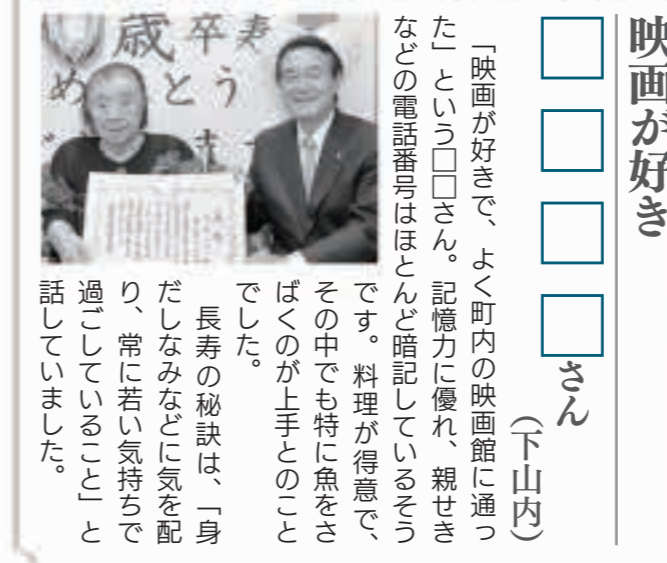 映画が好き
□□□□さん
（下山内）
「映画が好きで、よく町内の映画館に通っ
た」という□□さん。記憶力に優れ、親せき
などの電話番号はほとんど暗記しているそう
です。料理が得意で、
その中でも特に魚をさ
ばくのが上手とのこと
でした。
長寿の秘訣は、「身
だしなみなどに気を配
り、常に若い気持ちで
過ごしていること」と
話していました。
歳卒寿
めとう